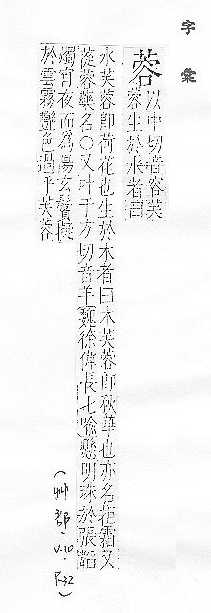 字彙
蓉
以中切音容芙
蓉生於水者曰
水芙蓉卽荷花也生於木者曰木芙蓉卽秋華也亦名拒霜又
蓯蓉藥名○又叶于方切音羊魏徐偉長七喻懸明珠於張韜
燭宵夜而爲陽玄鬢擬
於雲霧豔色過乎芙蓉
(艸部.V.10.P.32)